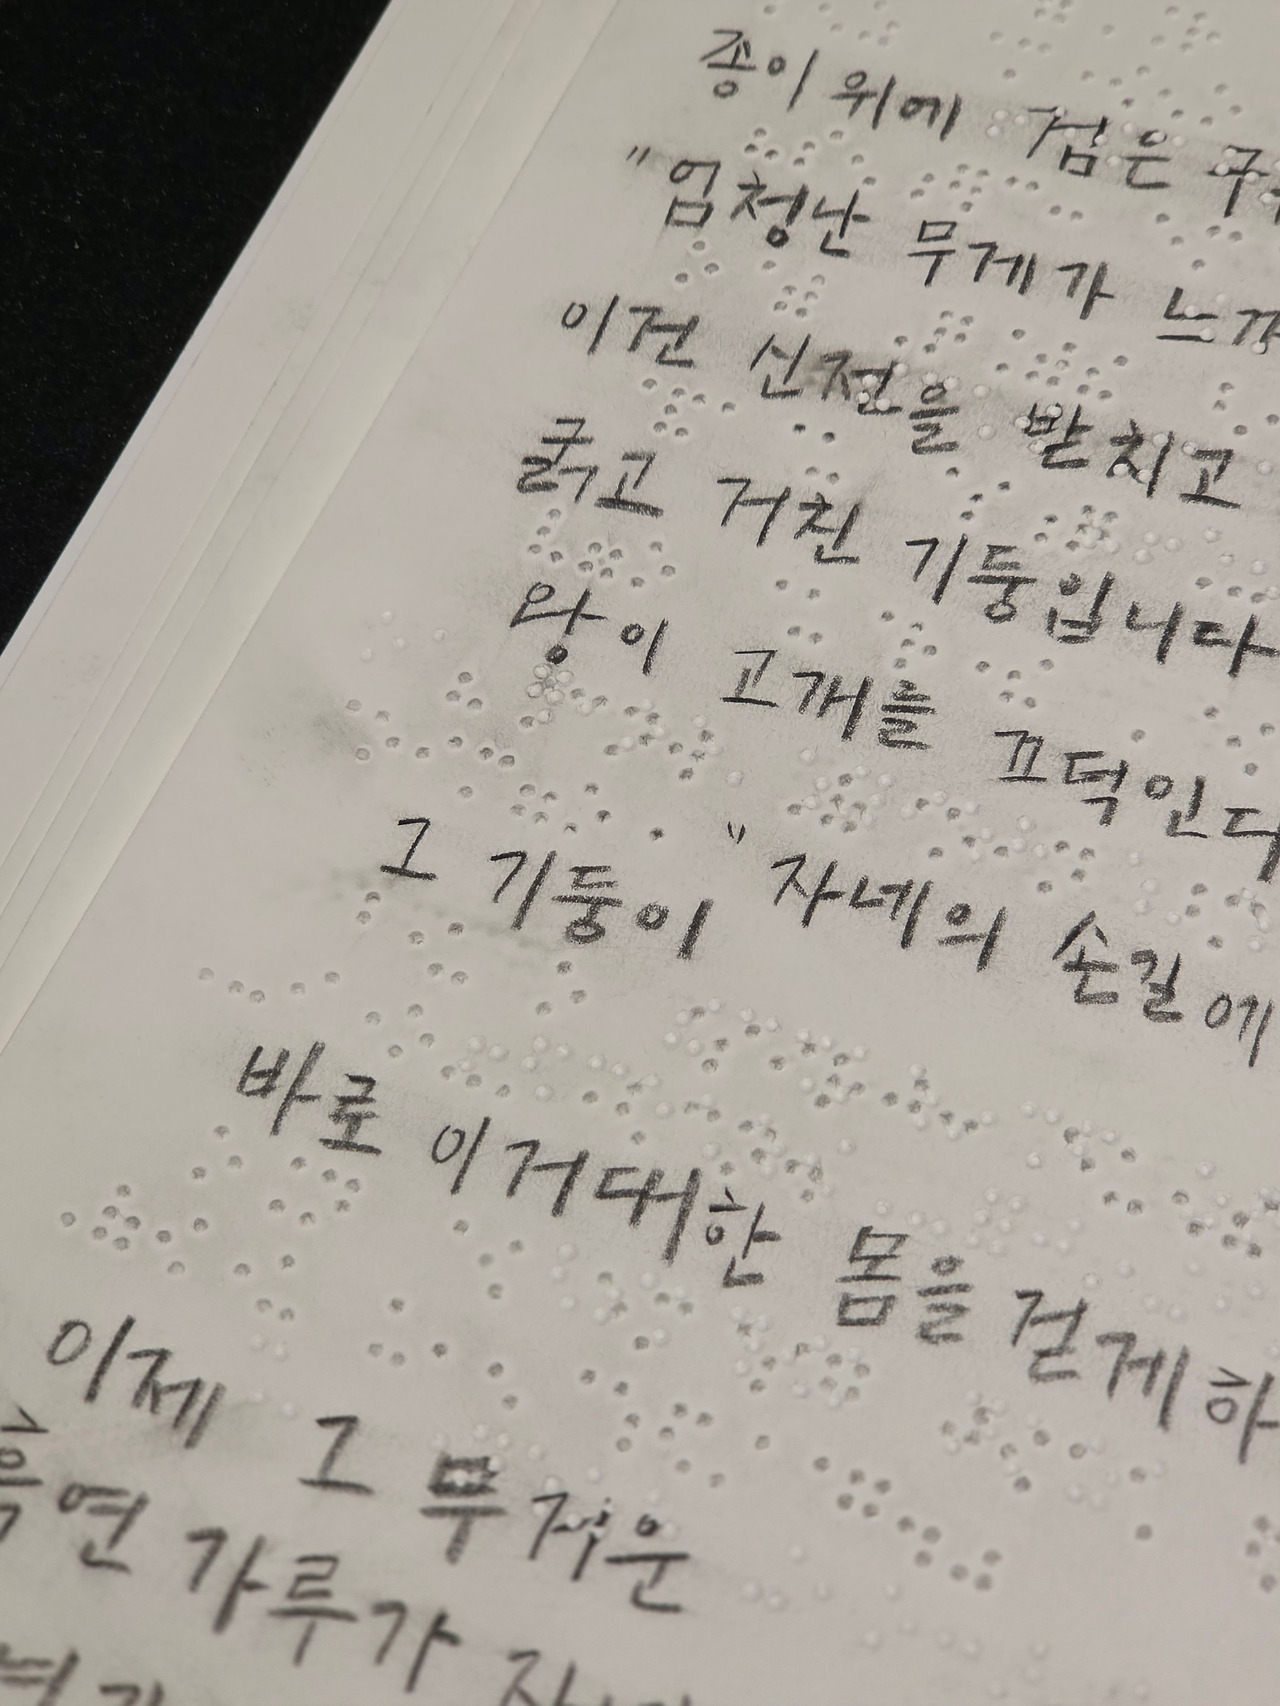 종이 위에 검은
"엄청난 무게가
이건 신전을 받치고
굵고 거친 기둥입니다
왕이 고개를 끄덕인다
그 기둥이 "자네의 손길에
바로 이 거대한 몸을 걷게 하
이제 그 무거운
흑연 가루가